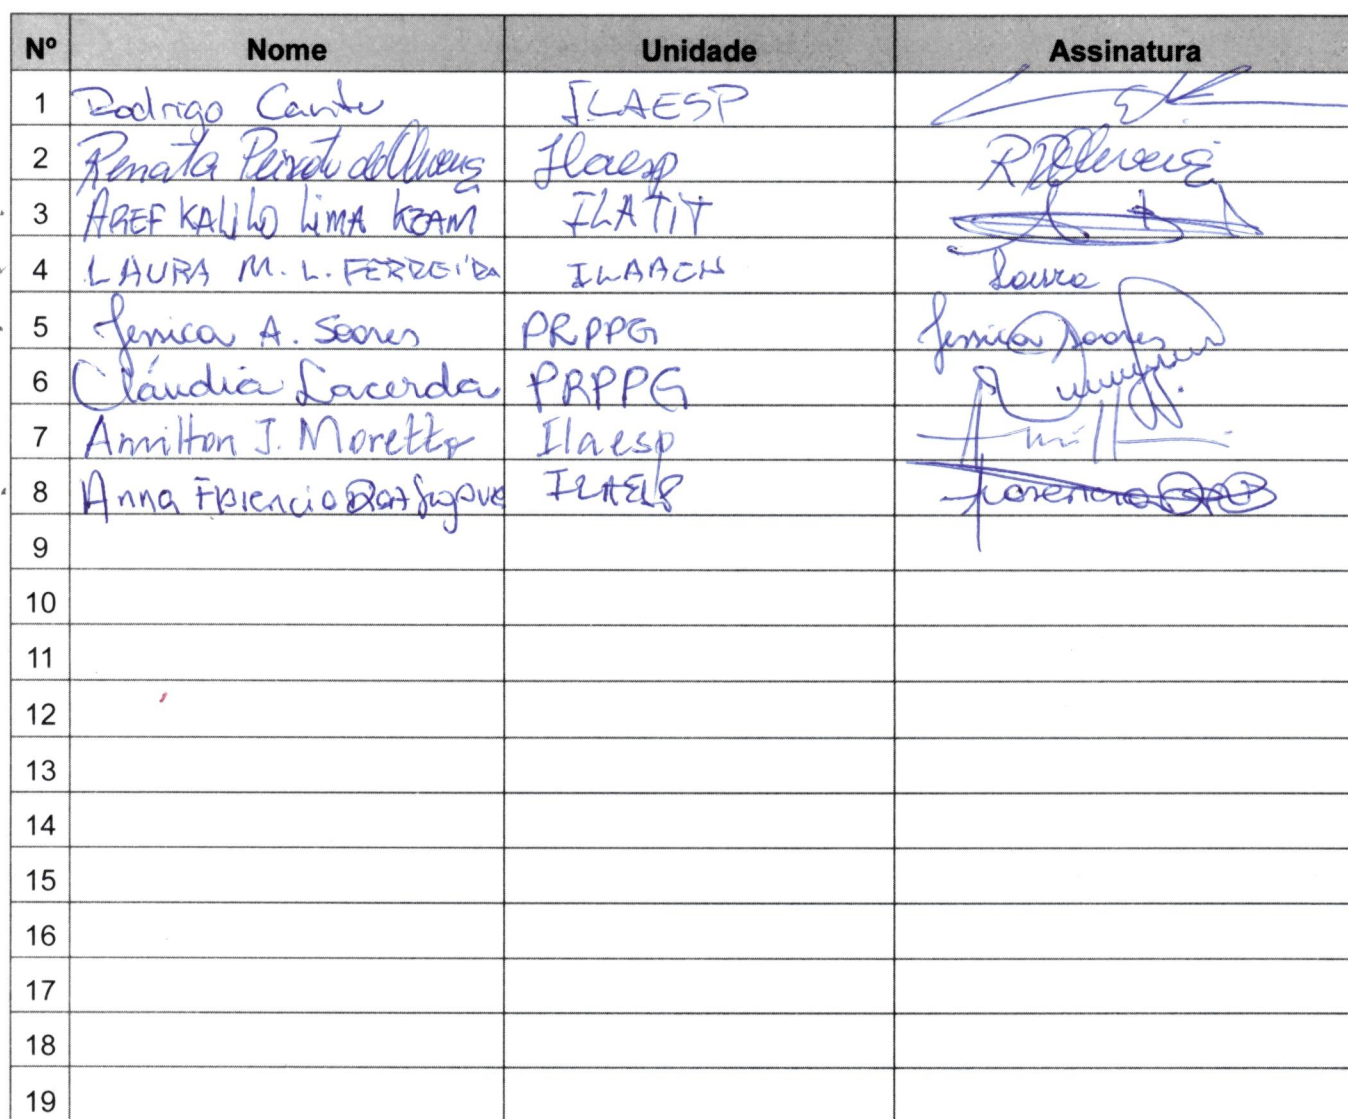 Nº Nome Unidade Assinatura
1 Rodrigo Cantu ILAESP
2 Renata Peixoto de Oliveira Ilaesp
3 AREF KALILO LIMA KZAM ILATIT
4 LAURA M. L. FERREIRA ILAACH Laura
5 Jessica A. Soares PRPPG Jessica Soares
6 Cláudia Lacerda PRPPG
7 Amilton J. Moretto Ilaesp
8 Anna Florencio ILAESP Florencio
9
10
11
12
13
14
15
16
17
18
19